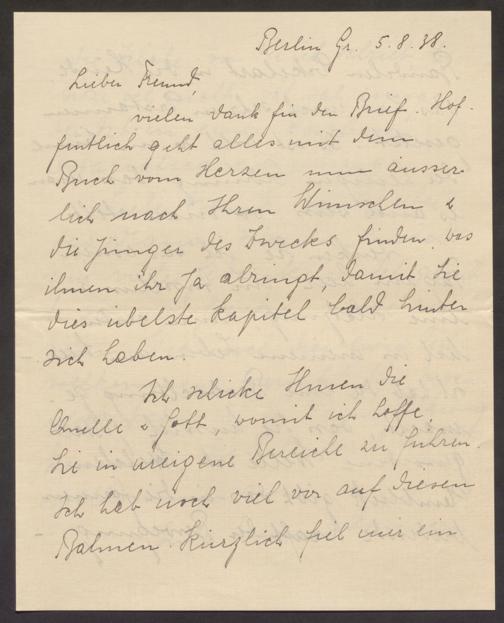 Berlin Gr. 5.8.38.
Lieber Freund,
vielen Dank für den Brief. Hof-
fentlich geht alles mit dem
Buch vom Herzen nun äusser-
lich nach Ihren Wünschen &
die Jünger des Zwecks finden, was
ihnen ihr Ja abringt, damit Sie
dies übelste Kapitel bald hinter
sich haben.
Ich schicke Ihnen die
Quelle & Gott, womit ich hoffe,
Sie in areigene Bereiche zu führen.
Ich hab noch viel vor auf diesen
Bahnen. Kürzlich fiel mir ein